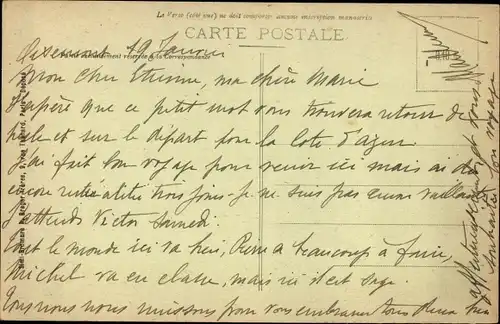 Le Verso (côté vue) ne doit comporter aucune inscription manuscrite
CARTE POSTALE
Oisemont 19 Janvier
exclusivement réservée à la Correspondance
Mon cher Etienne, ma chère Marie
J'espère que ce petit mot vous trouvera retour de
et sur le départ pour la Côte d'Azur.
J'ai fait bon voyage pour venir ici mais ai dû
encore rester alitée trois jours. Je ne suis pas encore vaillante
J'attends Victor Samedi.
Tout le monde ici va bien, Pierre a beaucoup à faire,
Michel va en classe, mais ici il est sage.
Tous nous nous unissons pour vous embrasser tous deux
affectueusement et vous
souhaiter bon voyage